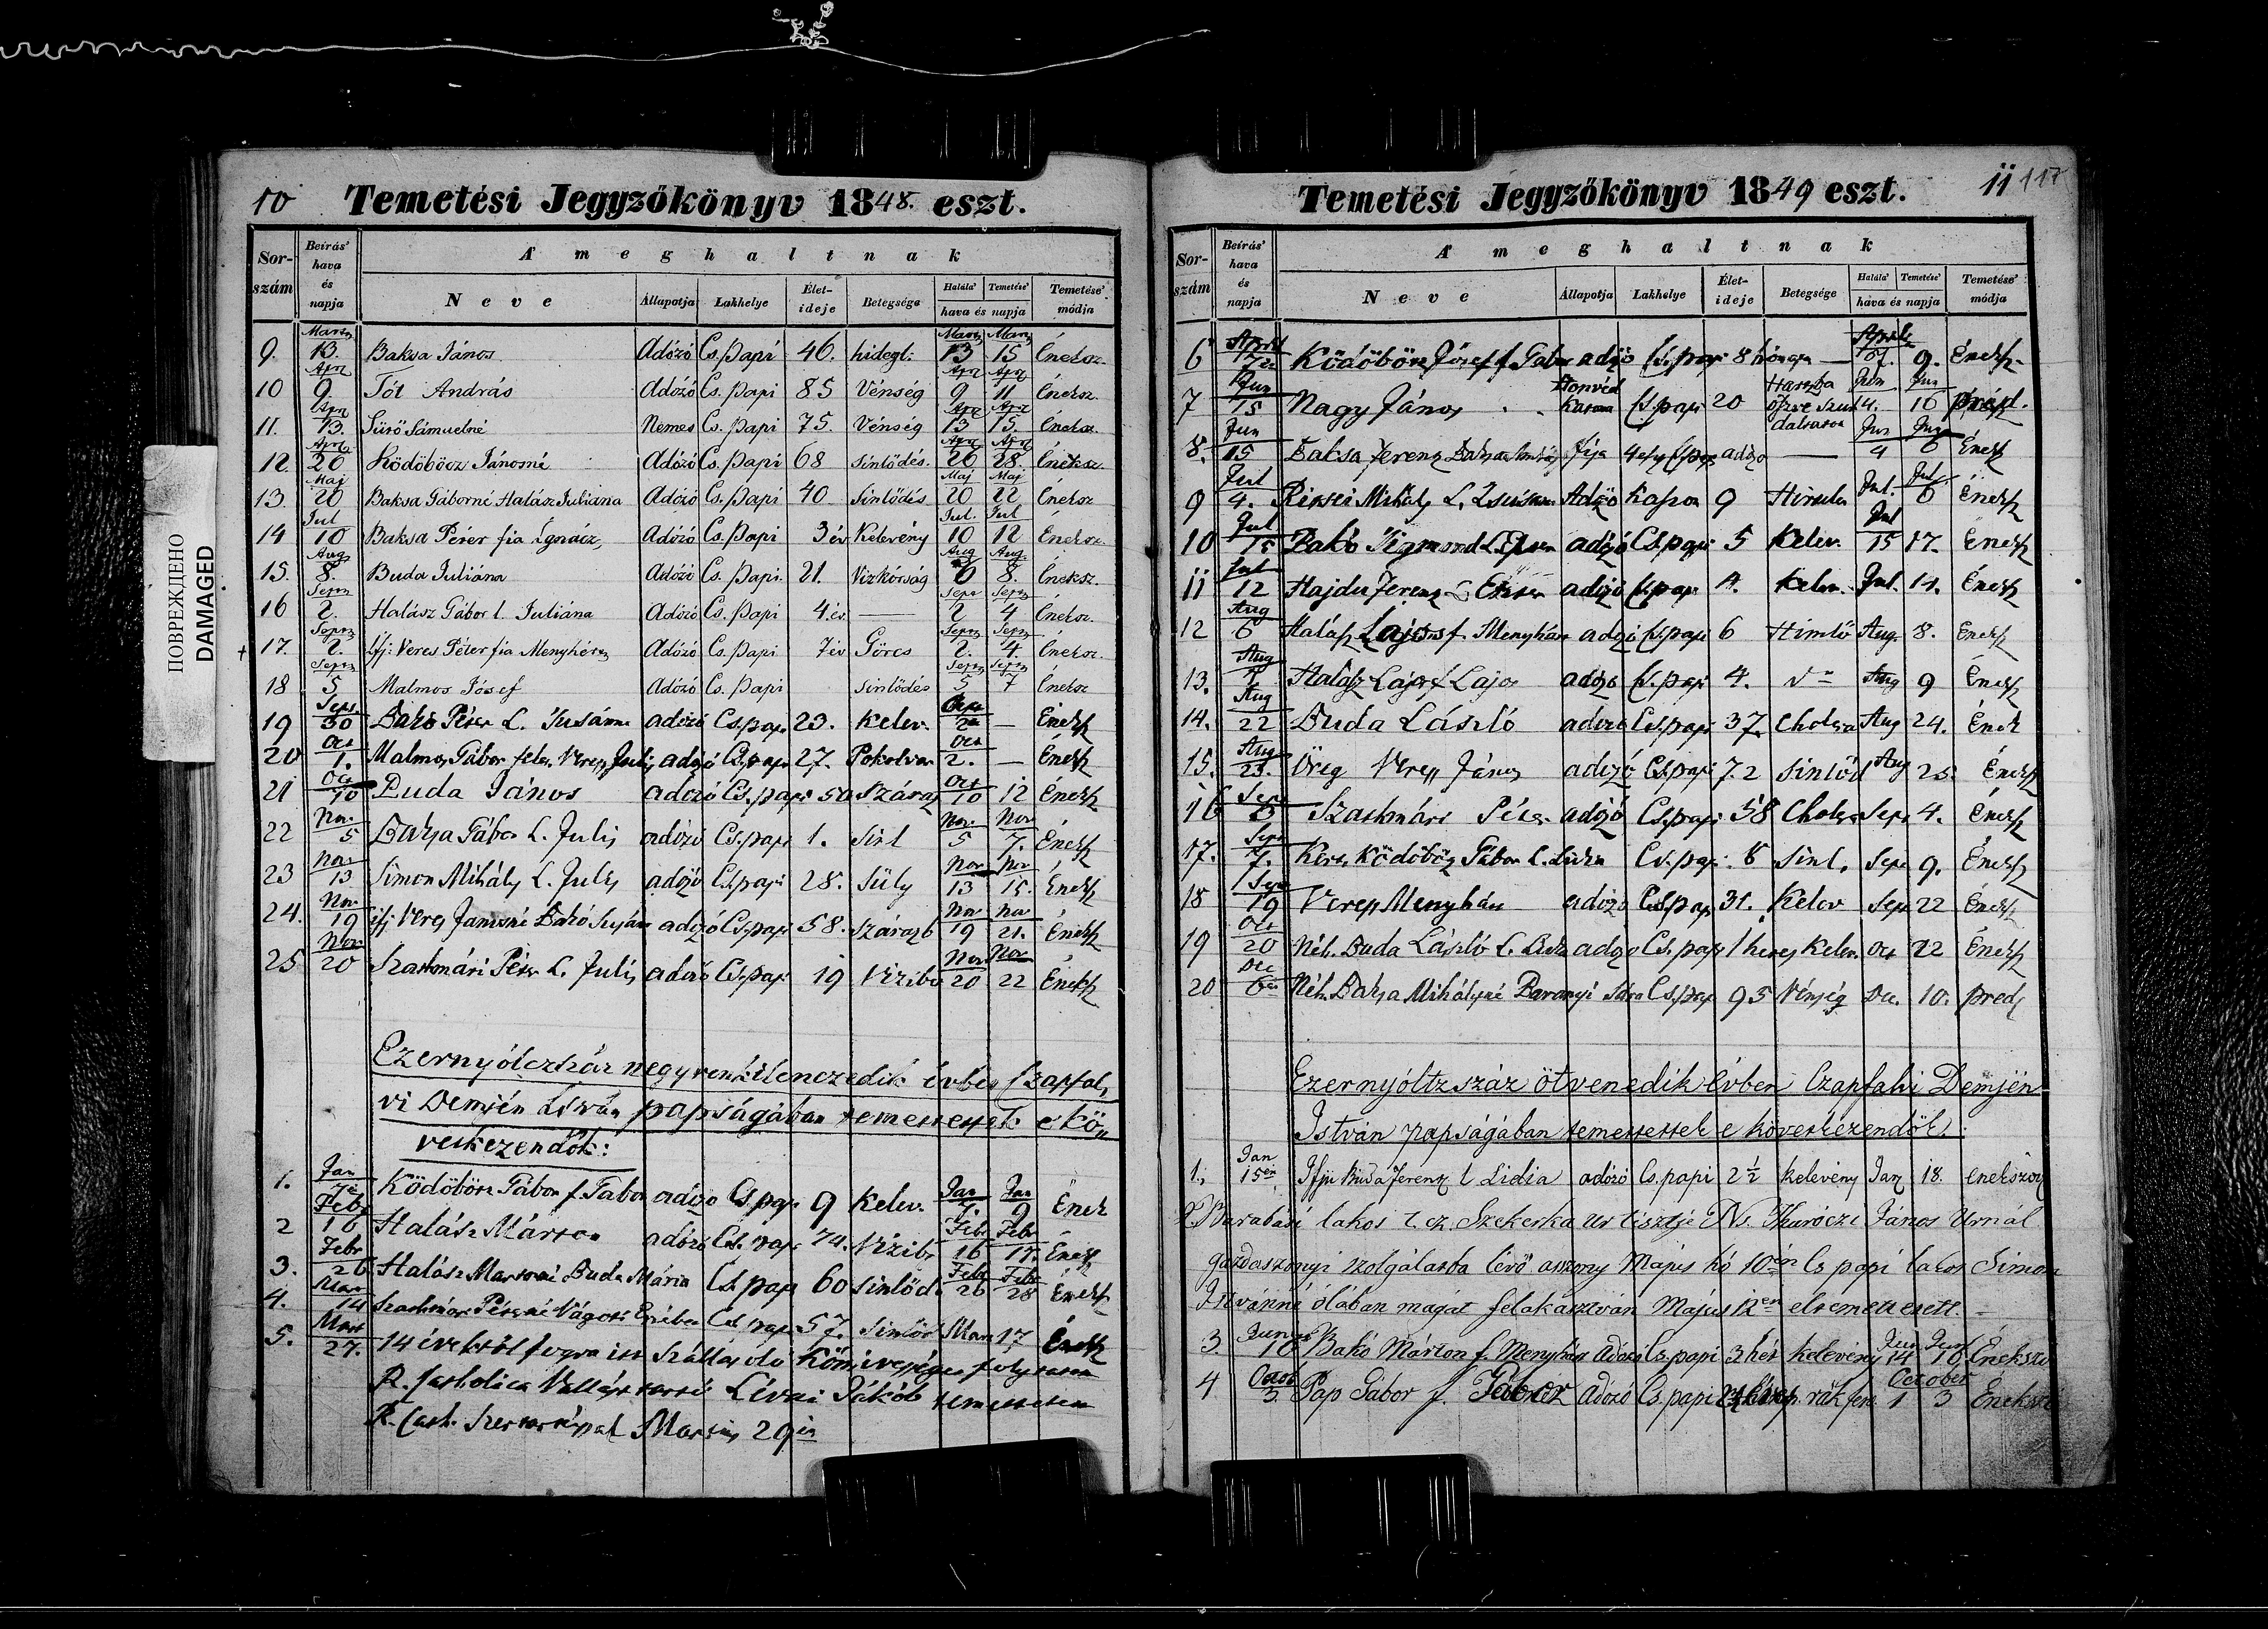 ПОВРЕЖДЕНО
DAMAGED
10 Temetési Jegyzőkönyv 1848. eszt.
Sor-szám Beírás' hava és napja A' meghaltnak
Neve Állapotja Lakhelye Élet-ideje Betegsége Halála' Temetése' hava és napja Temetése' módja
9. Mart 13. Baksa János Adózó Cs. Papi 46. hidegl. Mart 13 Mart 15 Éneksz.
10 Apr 9. Tót András Adózó Cs. Papi 85 Vénség Apr 9 Apr 11 Éneksz.
11. Apr 13. Sűrő Sámuelné Nemes Cs. Papi 75. Vénség Apr 13 Apr 15. Éneksz.
12 Apr 26 Ködöböcz Jánosné Adózó Cs. Papi 68 Sinlődés. Apr 26 Apr 28. Éneksz.
13. Maj 20 Baksa Gáborné Halász Juliana Adózó Cs. Papi 40 Sinlődés Maj 20 Maj 22 Éneksz
14 Jul 10 Baksa Péter fia Ignácz, Adózó Cs. Papi 3 év Kelevény Jul 10 Jul 12 Éneksz.
15. Aug 8. Buda Juliána Adózó Cs. Papi. 21. Vizkórság Aug 6 Aug. 8. Éneksz.
16 Sept 2. Halász Gábor l. Juliána Adózó Cs. Papi. 4 év — Sept 2 Sept 4 Éneksz.
17. Sept 2. Ifj: Veres Péter fia Menyhért Adózó Cs. Papi 7 év Görcs Sept 2. Sept 4. Éneksz.
18 Sept 5 Malmos Jósef Adózó Cs. Papi Sinlődés Sept 5 Sept 7 Éneksz
19 Sept 30 Bakó Péter L. Susánna adózó Cs. papi 23. kelev. — Éneksz
20 Oct 1. Malmos Gábor fele. Veress Julis adózó Cs. papi 27. Pokolvar Oct 2. — Éneksz
21 Oct 10 Buda János adózó Cs. papi 50 Száraz Oct 10 12 Éneksz
22 Nov. 5 Baksa Gábor L. Julis adózó Cs. papi 1. Sinl Nov. 5 Nov 7. Éneksz
23 Nov 13 Simon Mihály L. Julis adózó Cs. papi 28. Süly Nov 13 Nov 15. Éneksz
24. Nov. 19 ifj. Veres Jánosné Bakó Susán adózó Cs. papi 58. szárazb Nov 19 Nov 21. Éneksz
25 Nov. 20 Szathmári Péter L. Julis adózó Cs. papi 19 Vizibe Nov 20 Nov 22 Éneksz
Ezernyólczszáz negyvenkilenczedik évben Czapfal,
vi Demjén István papságában temettettek e kö,,
vetkezendők:
1. Jan 7én Ködöböcz Gábor f. Gábor adózó Cs. papi 9 kelev. Jan 7. Jan 9 Ének
2 Febr 16 Halász Márton adózó Cs. papi 74. Vizibe Febr 16 Febr 17. Éneksz
3. Febr 26 Halász Martonné Buda Mária Cs. papi 60 sinlőd. Febr 26 Febr 28 Éneksz
4. Mart 14 Szathmári Péterné Vágosi Cs. papi 57. Sinlőd Mart 17 Éneksz
5. Mart 27. 14 évektől fogva itt Szállás óló Kőmivességet folytatott
R. Catholica Vallás Lévai Jákób temettetett
R. Cath. Szertartással Martius 29én
Temetési Jegyzőkönyv 1849 eszt. 11 117
Sor-szám Beírás' hava és napja A' meghaltnak
Neve Állapotja Lakhelye Élet-ideje Betegsége Halála' Temetése' hava és napja Temetése' módja
6 April 7én Ködöböcz Jósef f. Gabor adózó Cs. papi 8 hónapos — April 7. 9. Éneksz.
7 Jun 15 Nagy János Honvéd Katona Cs. papi 20 Harczba öszve szurdaltatott Jun 14. Jun 16 préd.
8. Jun 15 Baksa Ferencz Baksa András fija Cs. papi adózó — Jun 4 6 Éneksz
9 Jul 4. Mihály L. Zsuzsánna Adózó 9 Himlő Jul. Jul 6 Éneksz
10 Jul 15 Bakó Sigmond L. Eszter adózó Cs. papi 5 kelev. Jul 15 17. Éneksz
11 Jul 12 Hajdu Ferencz L. Eszter adózó Cs. papi 4. kelev. Jul. 14. Éneksz
12 Aug 6 Halász Lajos f. Menyhárt adózó Cs. papi 6 Himlő Aug. 8. Éneksz
13. Aug 7 Halász Lajos f. Lajos adózó Cs. papi 4. Aug 9 Éneksz
14. Aug 22 Buda László adózó Cs. papi 37. Cholera Aug 24. Ének
15. Aug 23. Öreg Veress János adózó Cs. papi 72 sinlőd Aug 25. Éneksz
16 Sept Szathmári Péter adózó Cs. papi 58 Cholera Sept 4. Éneksz
17. Sept 7. Ködöböcz Gábor L. Cs. papi 8 sinl. Sept 9. Éneksz
18 Sept 19 Veress Menyhárt adózó Cs. papi 31. Kelev Sept 22 Éneksz
19 Oct 20 Néh. Buda László L. adózó Cs. papi 1 hetes kelev. Oct 22 Éneksz
20 Dec 8án Néh. Baksa Mihályné Baranyi Sára Cs. papi 95 Vénség Dec. 10. préd
Ezernyóltzszáz ötvenedik évben Czapfalvi Demjén
István papságában temettettek e következendők.
1., Jan 15én Ifju Buda Ferencz l Lidia adózó Cs. papi 2½ kelevény Jan 18. énekszóv
2. Barabási lakos t. cz. Szekerka Ur tisztje Ns. Thuróczi János Urnál
gazdaszonyi szolgálatba lévő asszony Május hó 10én Cs papi lakos Simon
Istvánné ólában magát felakasztván Május 12én eltemettetett. –
3. Junius 16 Bakó Márton f. Menyhárt Adózó Cs. papi 3 hét kelevény Jun 14 Jun 16 Énekszó
4 Octob 3. Pap Gábor f. Gábor Adózó Cs. papi October 1 3 Énekszó